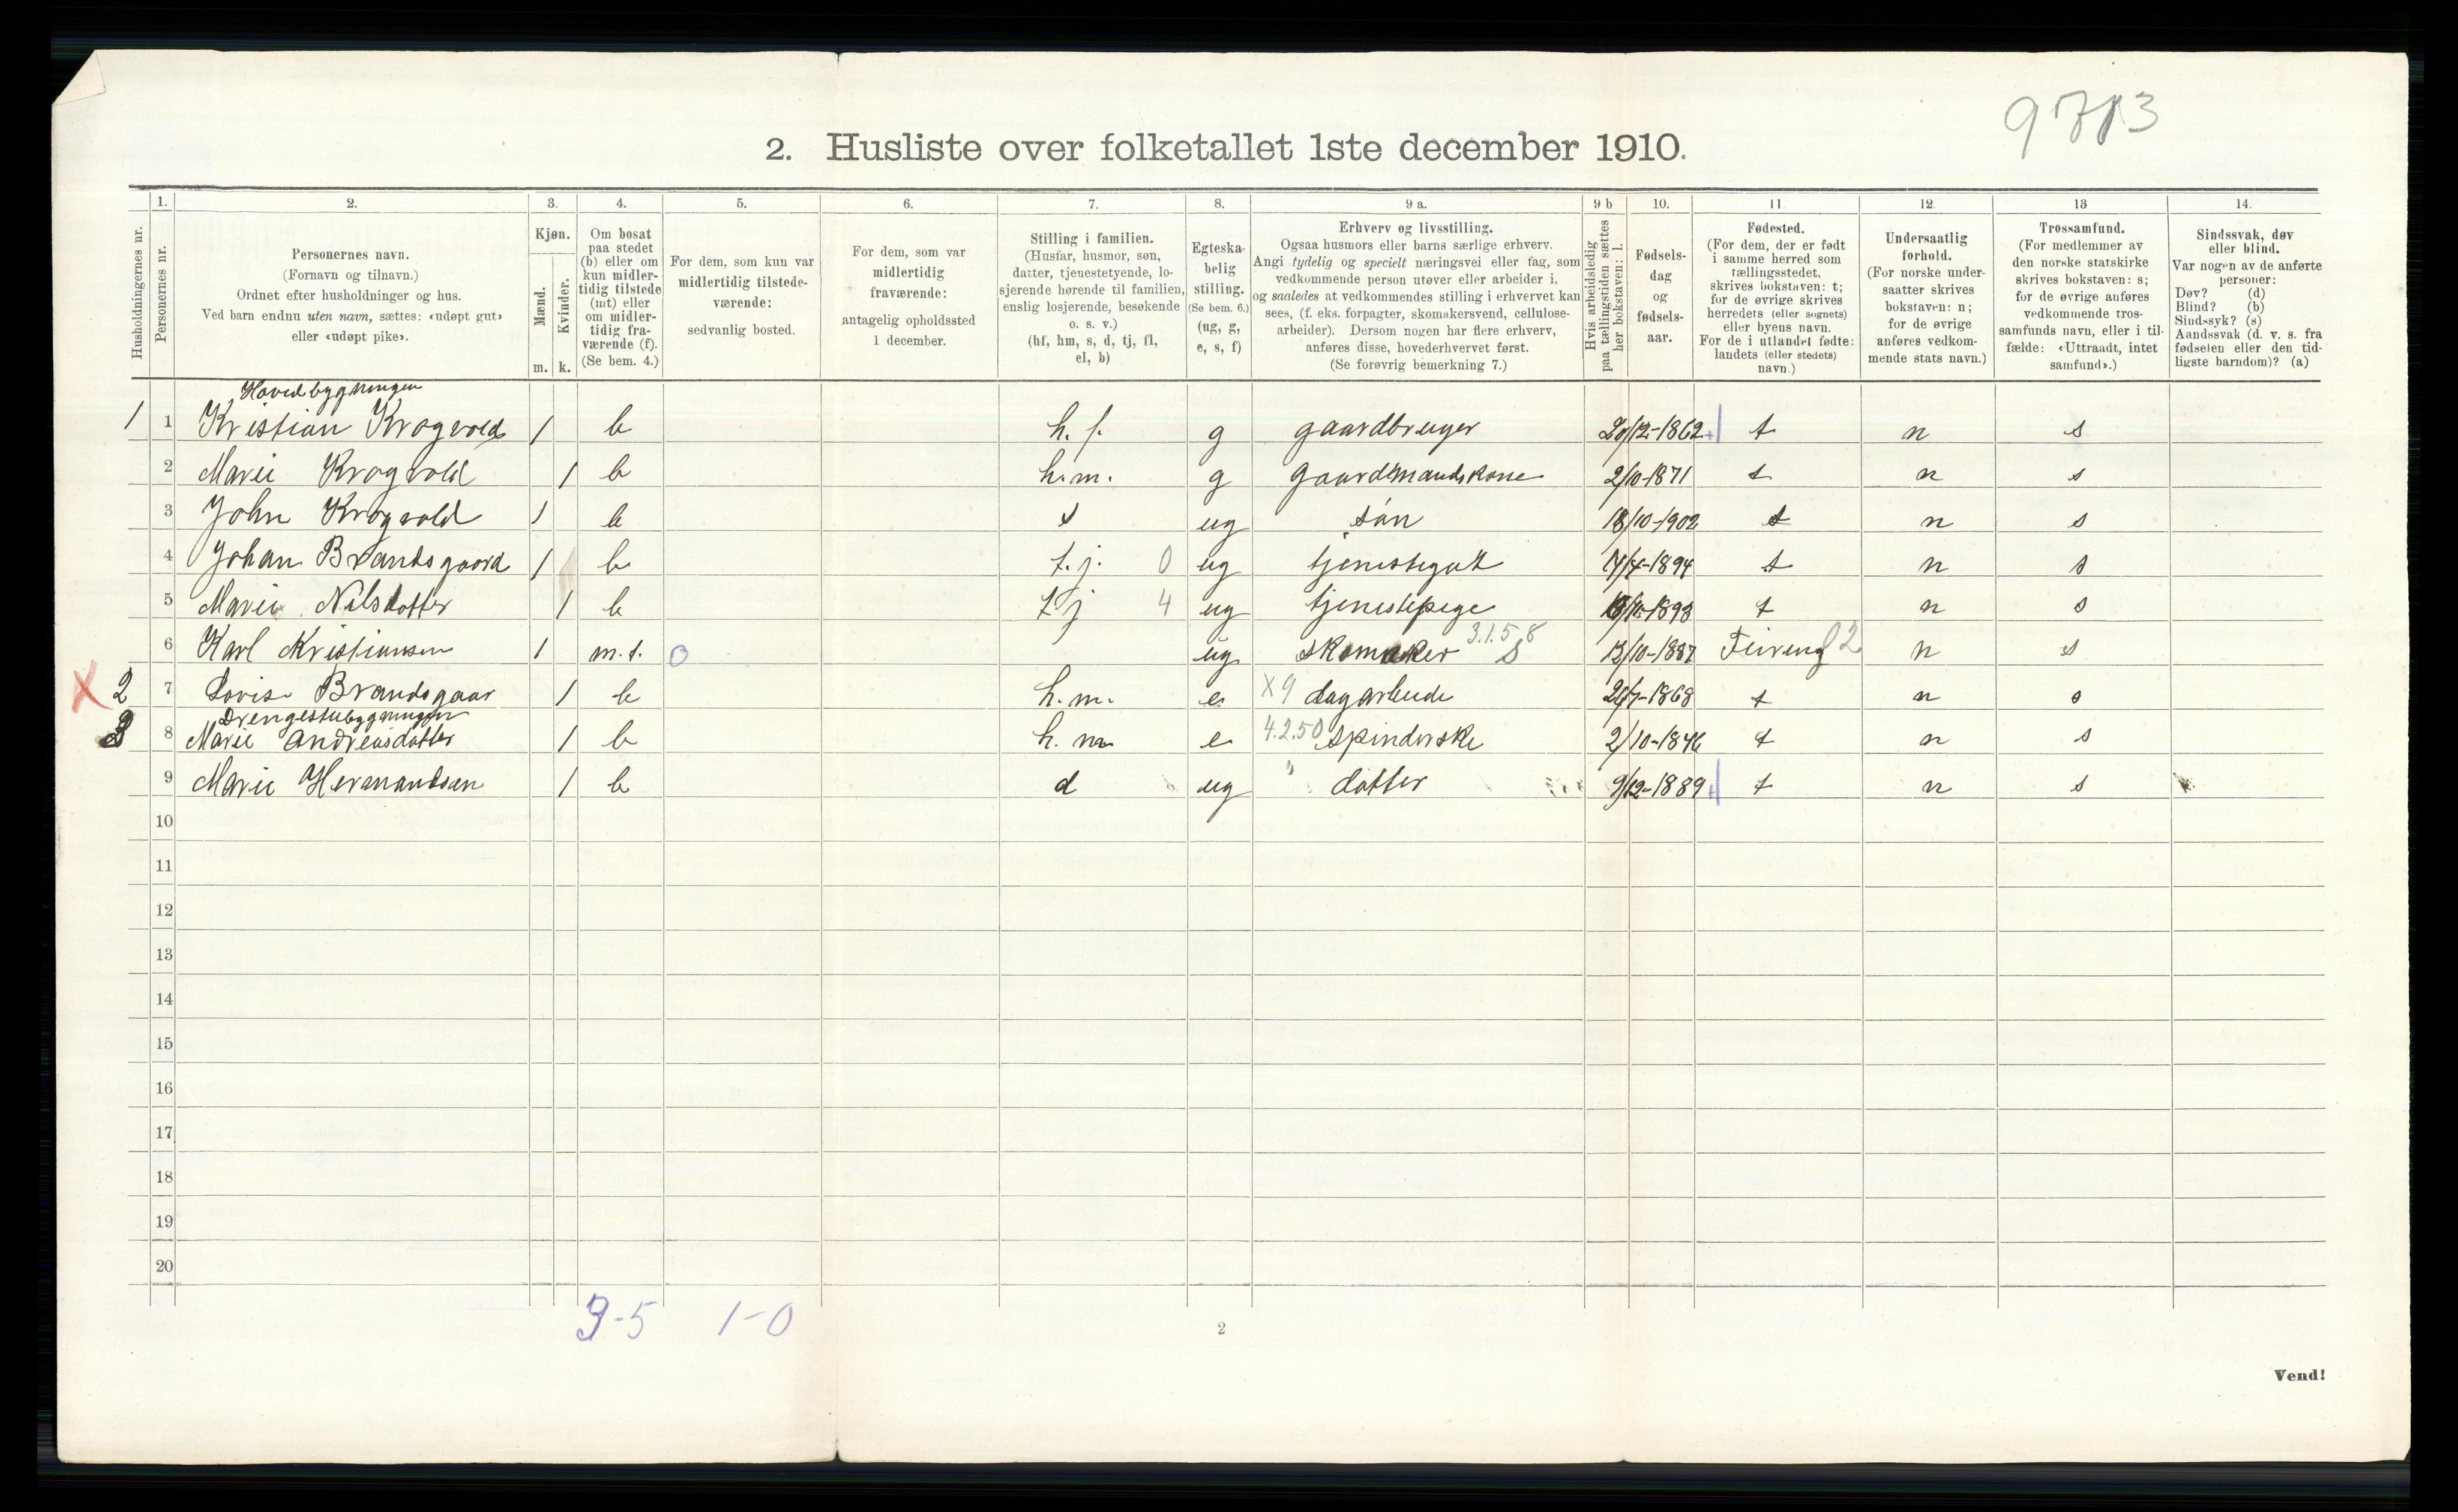 9713
2. Husliste over folketallet 1ste december 1910.
Husholdningernes nr.
1.
Personernes nr.
2.
Personernes navn.
(Fornavn og tilnavn.)
Ordnet efter husholdninger og hus.
Ved barn endnu uten navn, sættes: «udøpt gut»
eller «udøpt pike».
3.
Kjøn.
Mænd.
Kvinder.
m. k.
4.
Om bosat
paa stedet
(b) eller om
kun midler-
tidig tilstede
(mt) eller
om midler-
tidig fra-
værende (f).
(Se bem. 4.)
5.
For dem, som kun var
midlertidig tilstede-
værende:
sedvanlig bosted.
6.
For dem, som var
midlertidig
fraværende:
antagelig opholdssted
1 december.
7.
Stilling i familien.
(Husfar, husmor, søn,
datter, tjenestetyende, lo-
sjerende hørende til familien,
enslig losjerende, besøkende
o. s. v.)
(hf, hm, s, d, tj, fl,
el, b)
8.
Egteska-
belig
stilling.
(Se bem. 6.)
(ug, g,
e, s, f)
9 a.
Erhverv og livsstilling.
Ogsaa husmors eller barns særlige erhverv.
Angi tydelig og specielt næringsvei eller fag, som
vedkommende person utøver eller arbeider i,
og saaledes at vedkommendes stilling i erhvervet kan
sees, (f. eks. forpagter, skomakersvend, cellulose-
arbeider). Dersom nogen har flere erhverv,
anføres disse, hovederhvervet først.
(Se forøvrig bemerkning 7.)
9 b
Hvis arbeidsledig
paa tællingstiden sættes
her bokstaven: l.
10.
Fødsels-
dag
og
fødsels-
aar.
11.
Fødested.
(For dem, der er født
i samme herred som
tællingsstedet,
skrives bokstaven: t;
for de øvrige skrives
herredets (eller sognets)
eller byens navn.
For de i utlandet fødte:
landets (eller stedets)
navn.)
12.
Undersaatlig
forhold.
(For norske under-
saatter skrives
bokstaven: n;
for de øvrige
anføres vedkom-
mende stats navn.)
13
Trossamfund.
(For medlemmer av
den norske statskirke
skrives bokstaven: s;
for de øvrige anføres
vedkommende tros-
samfunds navn, eller i til-
fælde: «Uttraadt, intet
samfund».)
14.
Sindssvak, døv
eller blind.
Var nogen av de anførte
personer:
Døv? (d)
Blind? (b)
Sindssyk? (s)
Aandssvak (d. v. s. fra
fødselen eller den tid-
ligste barndom)? (a)
Hovedbygningen
1 1 Kristian Krogvold 1 b h. f. g gaardbruger 20/12-1862 t n s
2 Marie Krogvold 1 b h.m. g gaardmandskone 2/10-1871 t n s
3 John Krogvold 1 b s ug søn 18/10-1902 t n s
4 Johan Brandsgaard 1 b t.j. 0 ug tjenestegut 14/4-1894 t n s
5 Marie Nilsdotter 1 b tj 4 ug tjenestepige t n s
6 Karl Kristiansen 1 m.t. 0 ug skomaker 3.1.5 8 s 13/10-1887 Feiring 02 n s
X 2 7 Lovise Brandsgaar 1 b h.m. e X9 dagarbeide 26/7-1868 t n s
Drengestubygningen
3 8 Marie Andreasdatter 1 b h. m e 4.2.50 spinderske 2/10-1846 t n s
9 Marie Hermandsen 1 b d ug " datter 9/12-1889 t n s
10
11
12
13
14
15
16
17
18
19
20
3-5 1-0
2
Vend!